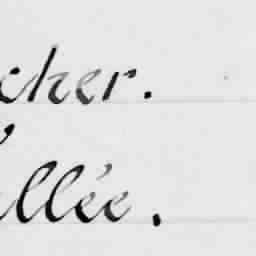 cher.
allée.